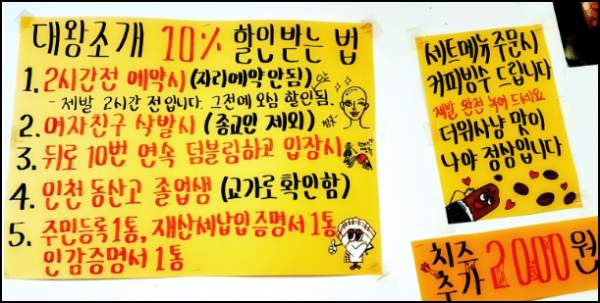 대왕조개 10% 할인받는 법
1. 2시간전 예약시 (자리예약 안됨)
- 제발 2시간 전입니다. 그전에 오심 할인됨.
2. 여자친구 삭발시 (종교인 제외)
3. 뒤로 10번 연속 덤블링하고 입장시
4. 인천 동산고 졸업생 (교가로 확인함)
5. 주민등록1통, 재산세납입증명서 1통
인감증명서 1통
세트메뉴 주문시
커피빙수 드립니다
제발 완전 녹여 드세요
더위사냥 맛이
나야 정상입니다
치즈
추가 2000원